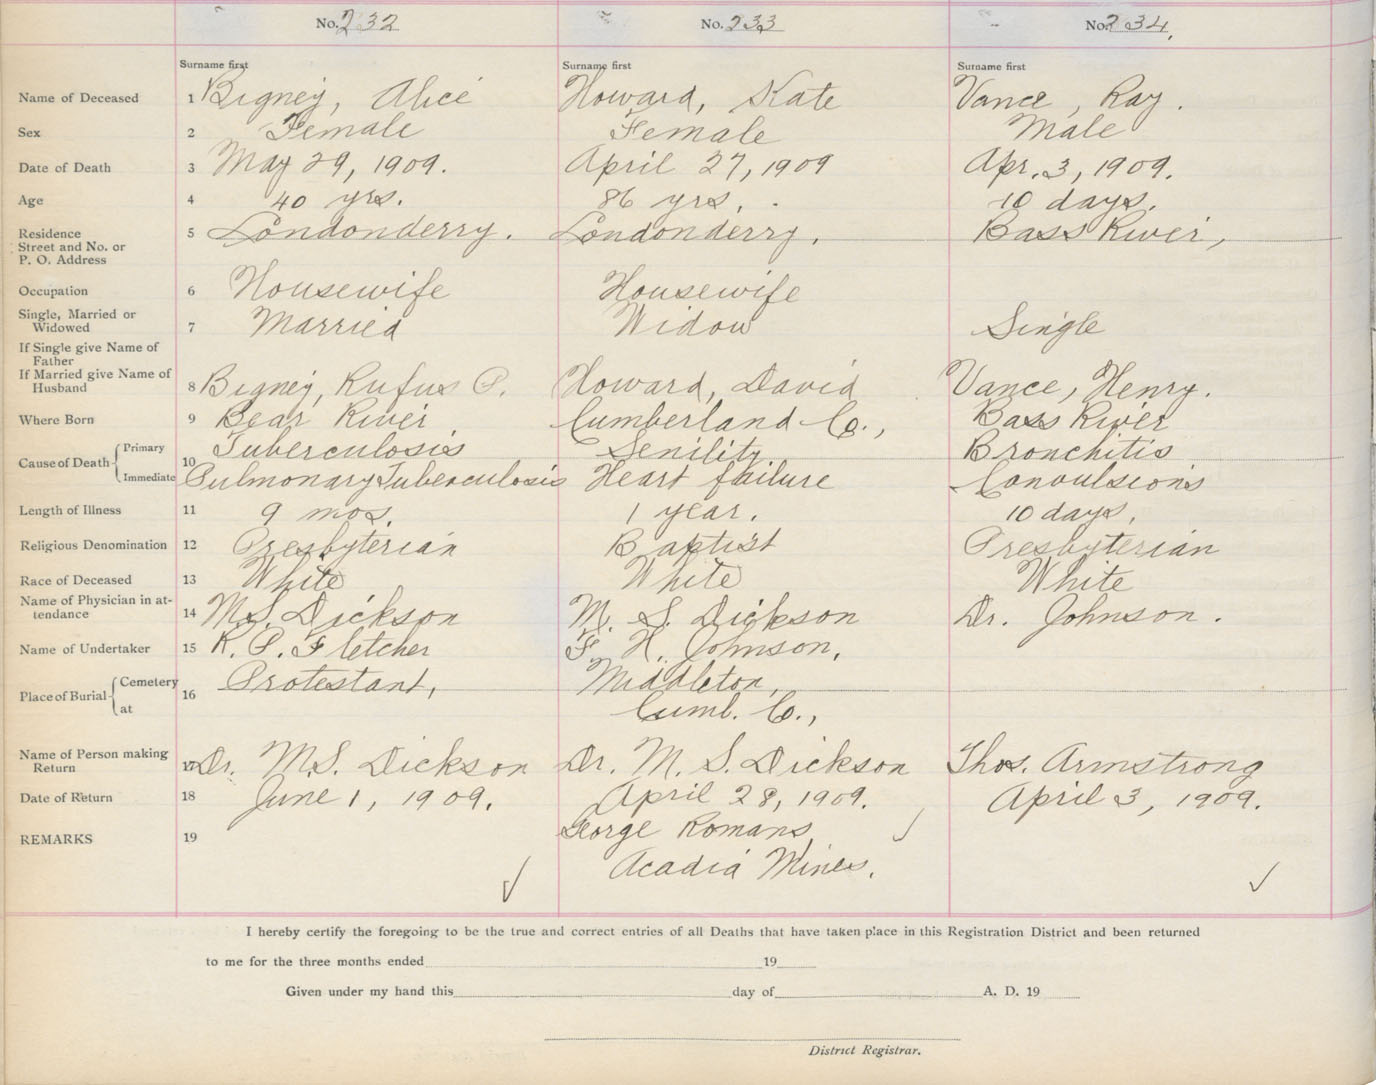 No. 232 No. 233 No. 234.
Surname first Surname first Surname first
Name of Deceased 1 Bigney, Alice Howard, Kate Vance, Ray.
Sex 2 Female Female Male
Date of Death 3 May 29, 1909. April 27, 1909 Apr. 3, 1909.
Age 4 40 yrs. 86 yrs. 10 days.
Residence 5 Londonderry. Londonderry, Bass River,
Street and No. or
P. O. Address
Occupation 6 Housewife Housewife
Single, Married or
Widowed 7 Married Widow Single
If Single give Name of
Father
If Married give Name of
Husband 8 Bigney, Rufus P. Howard, David Vance, Henry.
Where Born 9 Bear River Cumberland Co., Bass River
Cause of Death Primary 10 Tuberculosis Senility Bronchitis
Immediate Pulmonary Tuberculosis Heart failure Convulsions
Length of Illness 11 9 mos. 1 year. 10 days.
Religious Denomination 12 Presbyterian Baptist Presbyterian
Race of Deceased 13 White White White
Name of Physician in at-
tendance 14 M.S. Dickson M. S. Dickson Dr. Johnson.
Name of Undertaker 15 R. P. Fletcher F. H. Johnson,
Place of Burial Cemetery 16 Protestant, Middleton,
at Cumb. Co.,
Name of Person making
Return 17 Dr. M.S. Dickson Dr. M. S. Dickson Thos. Armstrong
Date of Return 18 June 1, 1909. April 28, 1909. April 3, 1909.
REMARKS 19 George Romans
Acadia Mines.
I hereby certify the foregoing to be the true and correct entries of all Deaths that have taken place in this Registration District and been returned
to me for the three months ended 19
Given under my hand this day of A. D. 19
District Registrar.